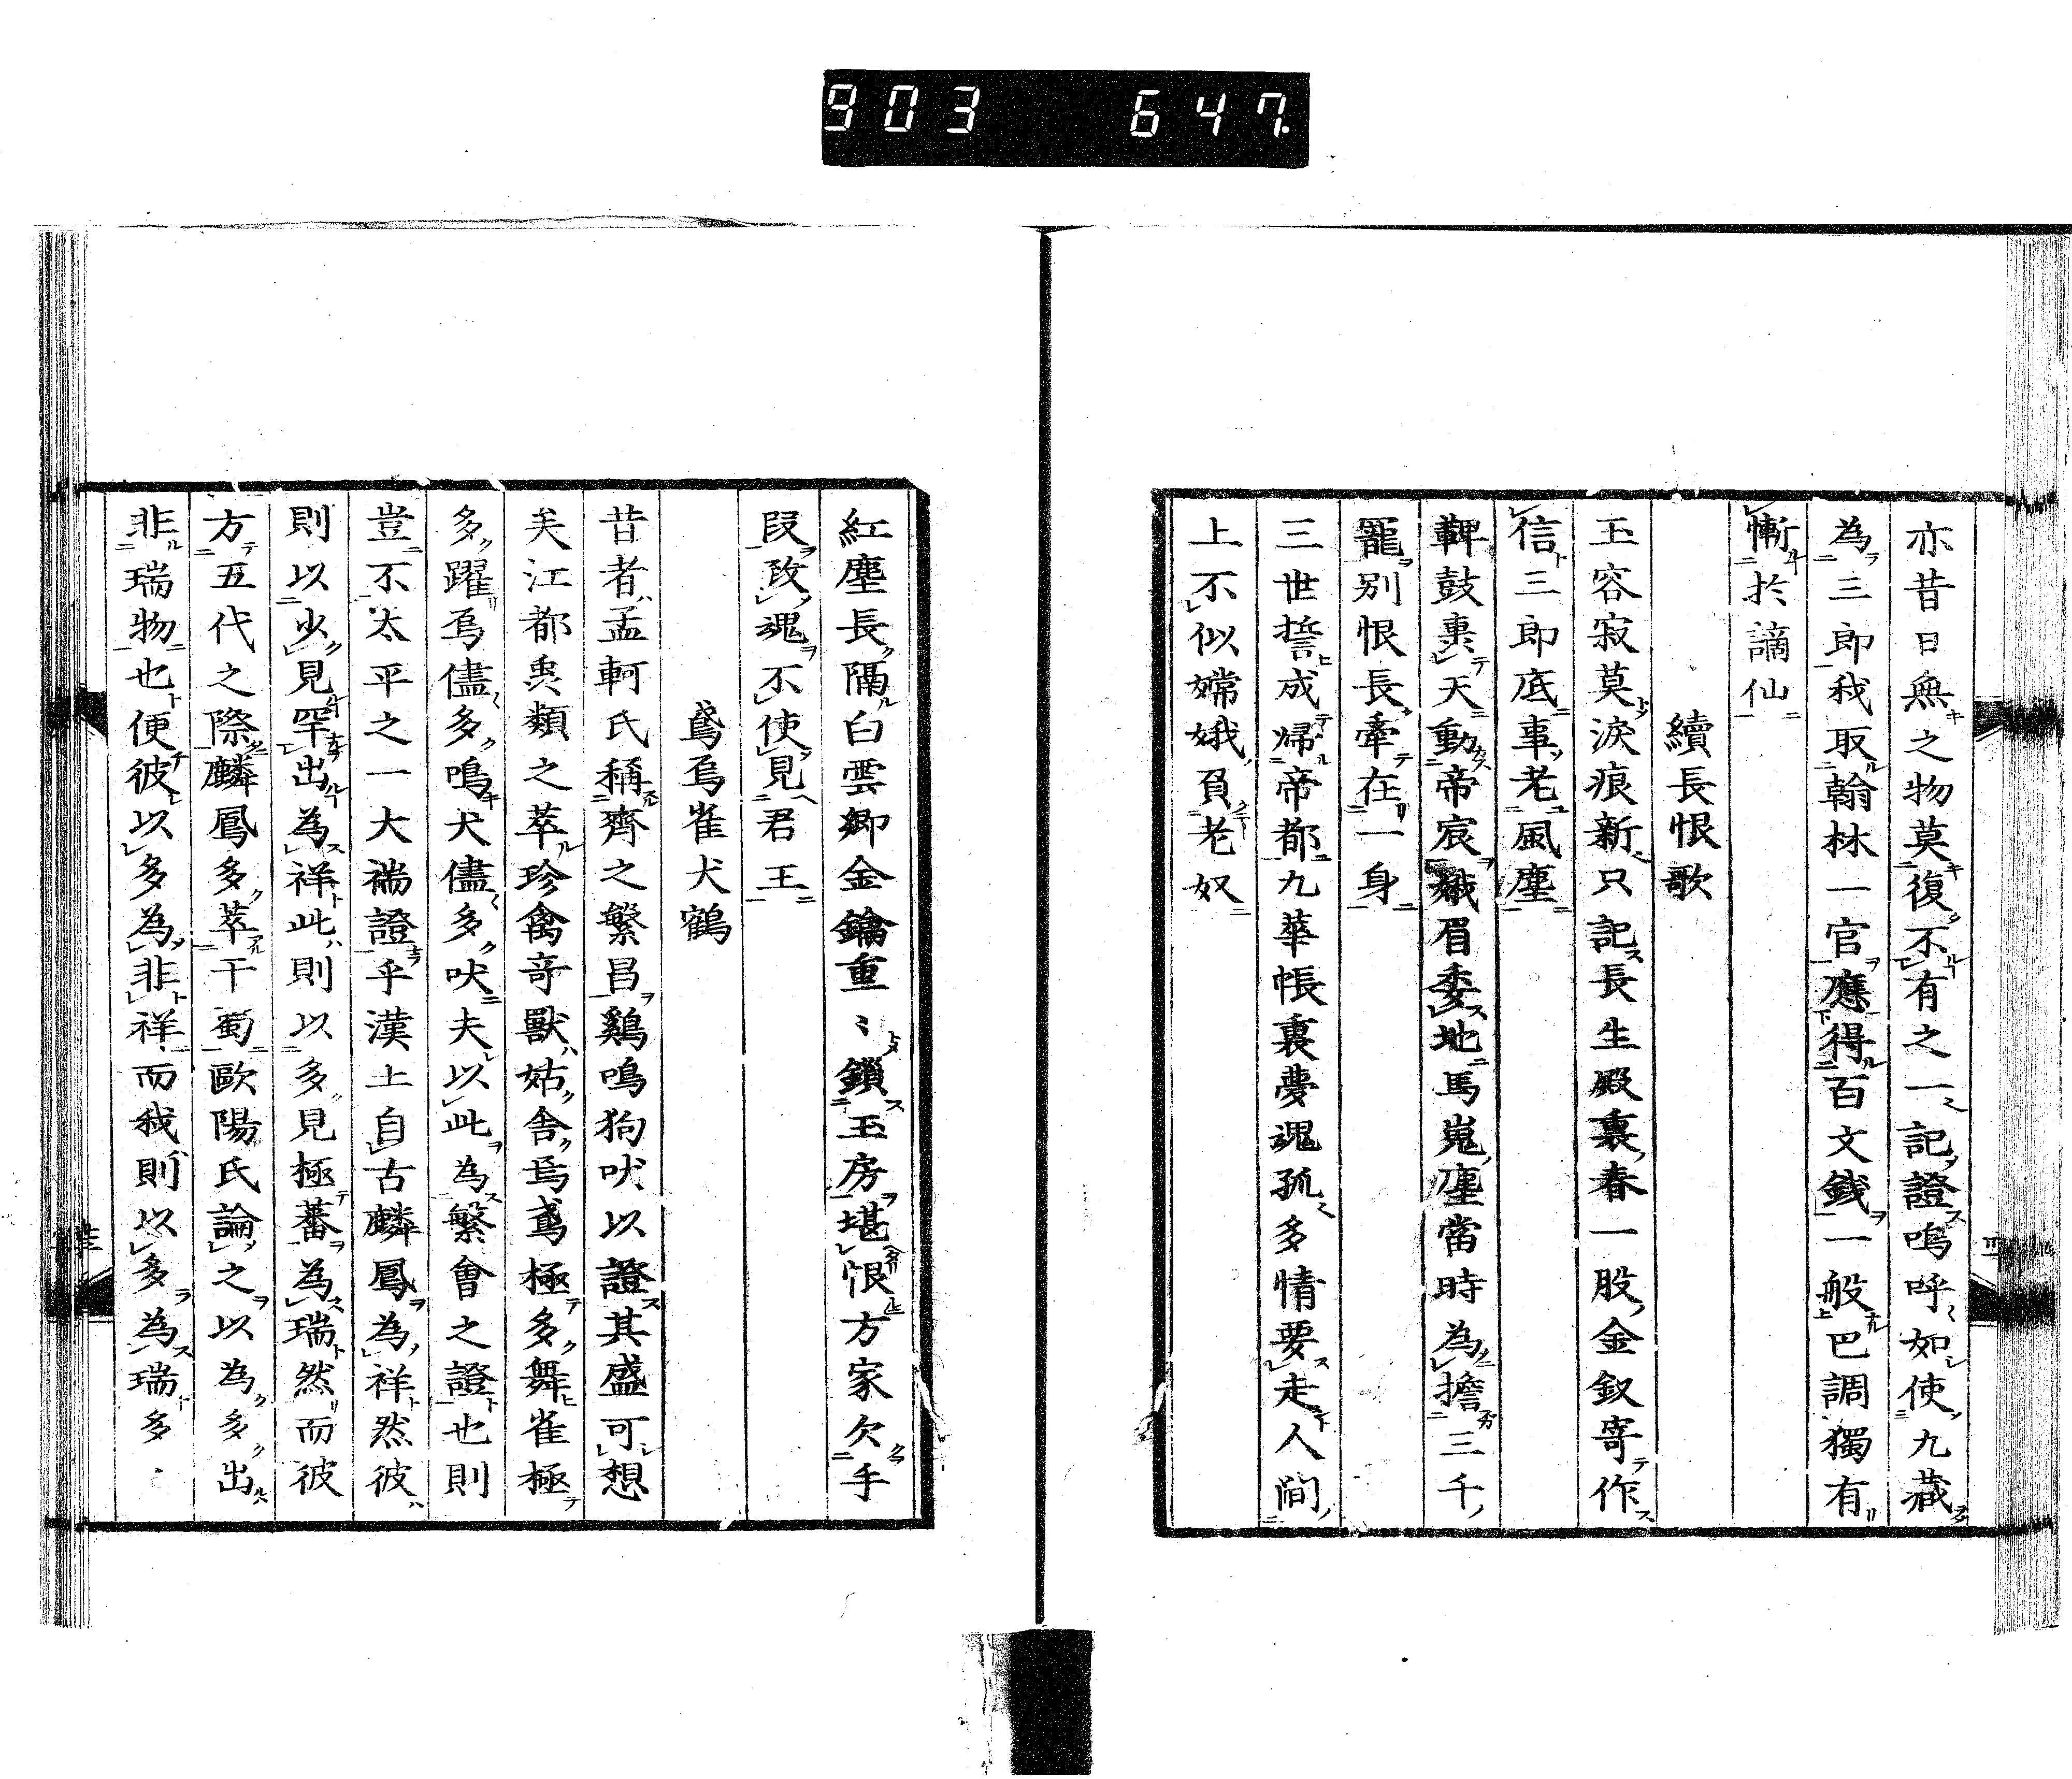 903 647.
亦昔日無之物莫復不有之一記證嗚呼如使九藏
為三郎我取翰林一官應得百文錢一般巴調獨有
慚於謫仙
續長恨歌
玉容寂莫淚痕新只記長生殿裏春一股金釵寄作
信三郎底事老風塵
鞞鼓裏天動帝宸蛾眉委地馬嵬塵當時為擔三千
寵別恨長牽在一身
三世誓成帰帝都九華帳裏夢魂孤多情要走人間
上不似嫦娥負老奴
紅塵長隔白雲鄉金鑰重〻鎖玉房堪恨方家欠手
段改魂不使見君王
鳶烏雀犬鶴
昔者孟軻氏稱齊之繁昌鷄鳴狗吠以證其盛可想
矣江都禽類之萃珍禽奇獸姑舍焉鳶極多舞雀極
多躍烏儘多鳴犬儘多吠夫以此為繁會之證也則
豈不太平之一大瑞證乎漢土自古麟鳳為祥然彼
則以少見罕出為祥此則以多見極蕃為瑞然而彼
方五代之際麟鳳多萃干蜀歐陽氏論之以為多出
非瑞物也便彼以多為非祥而我則以多為瑞多